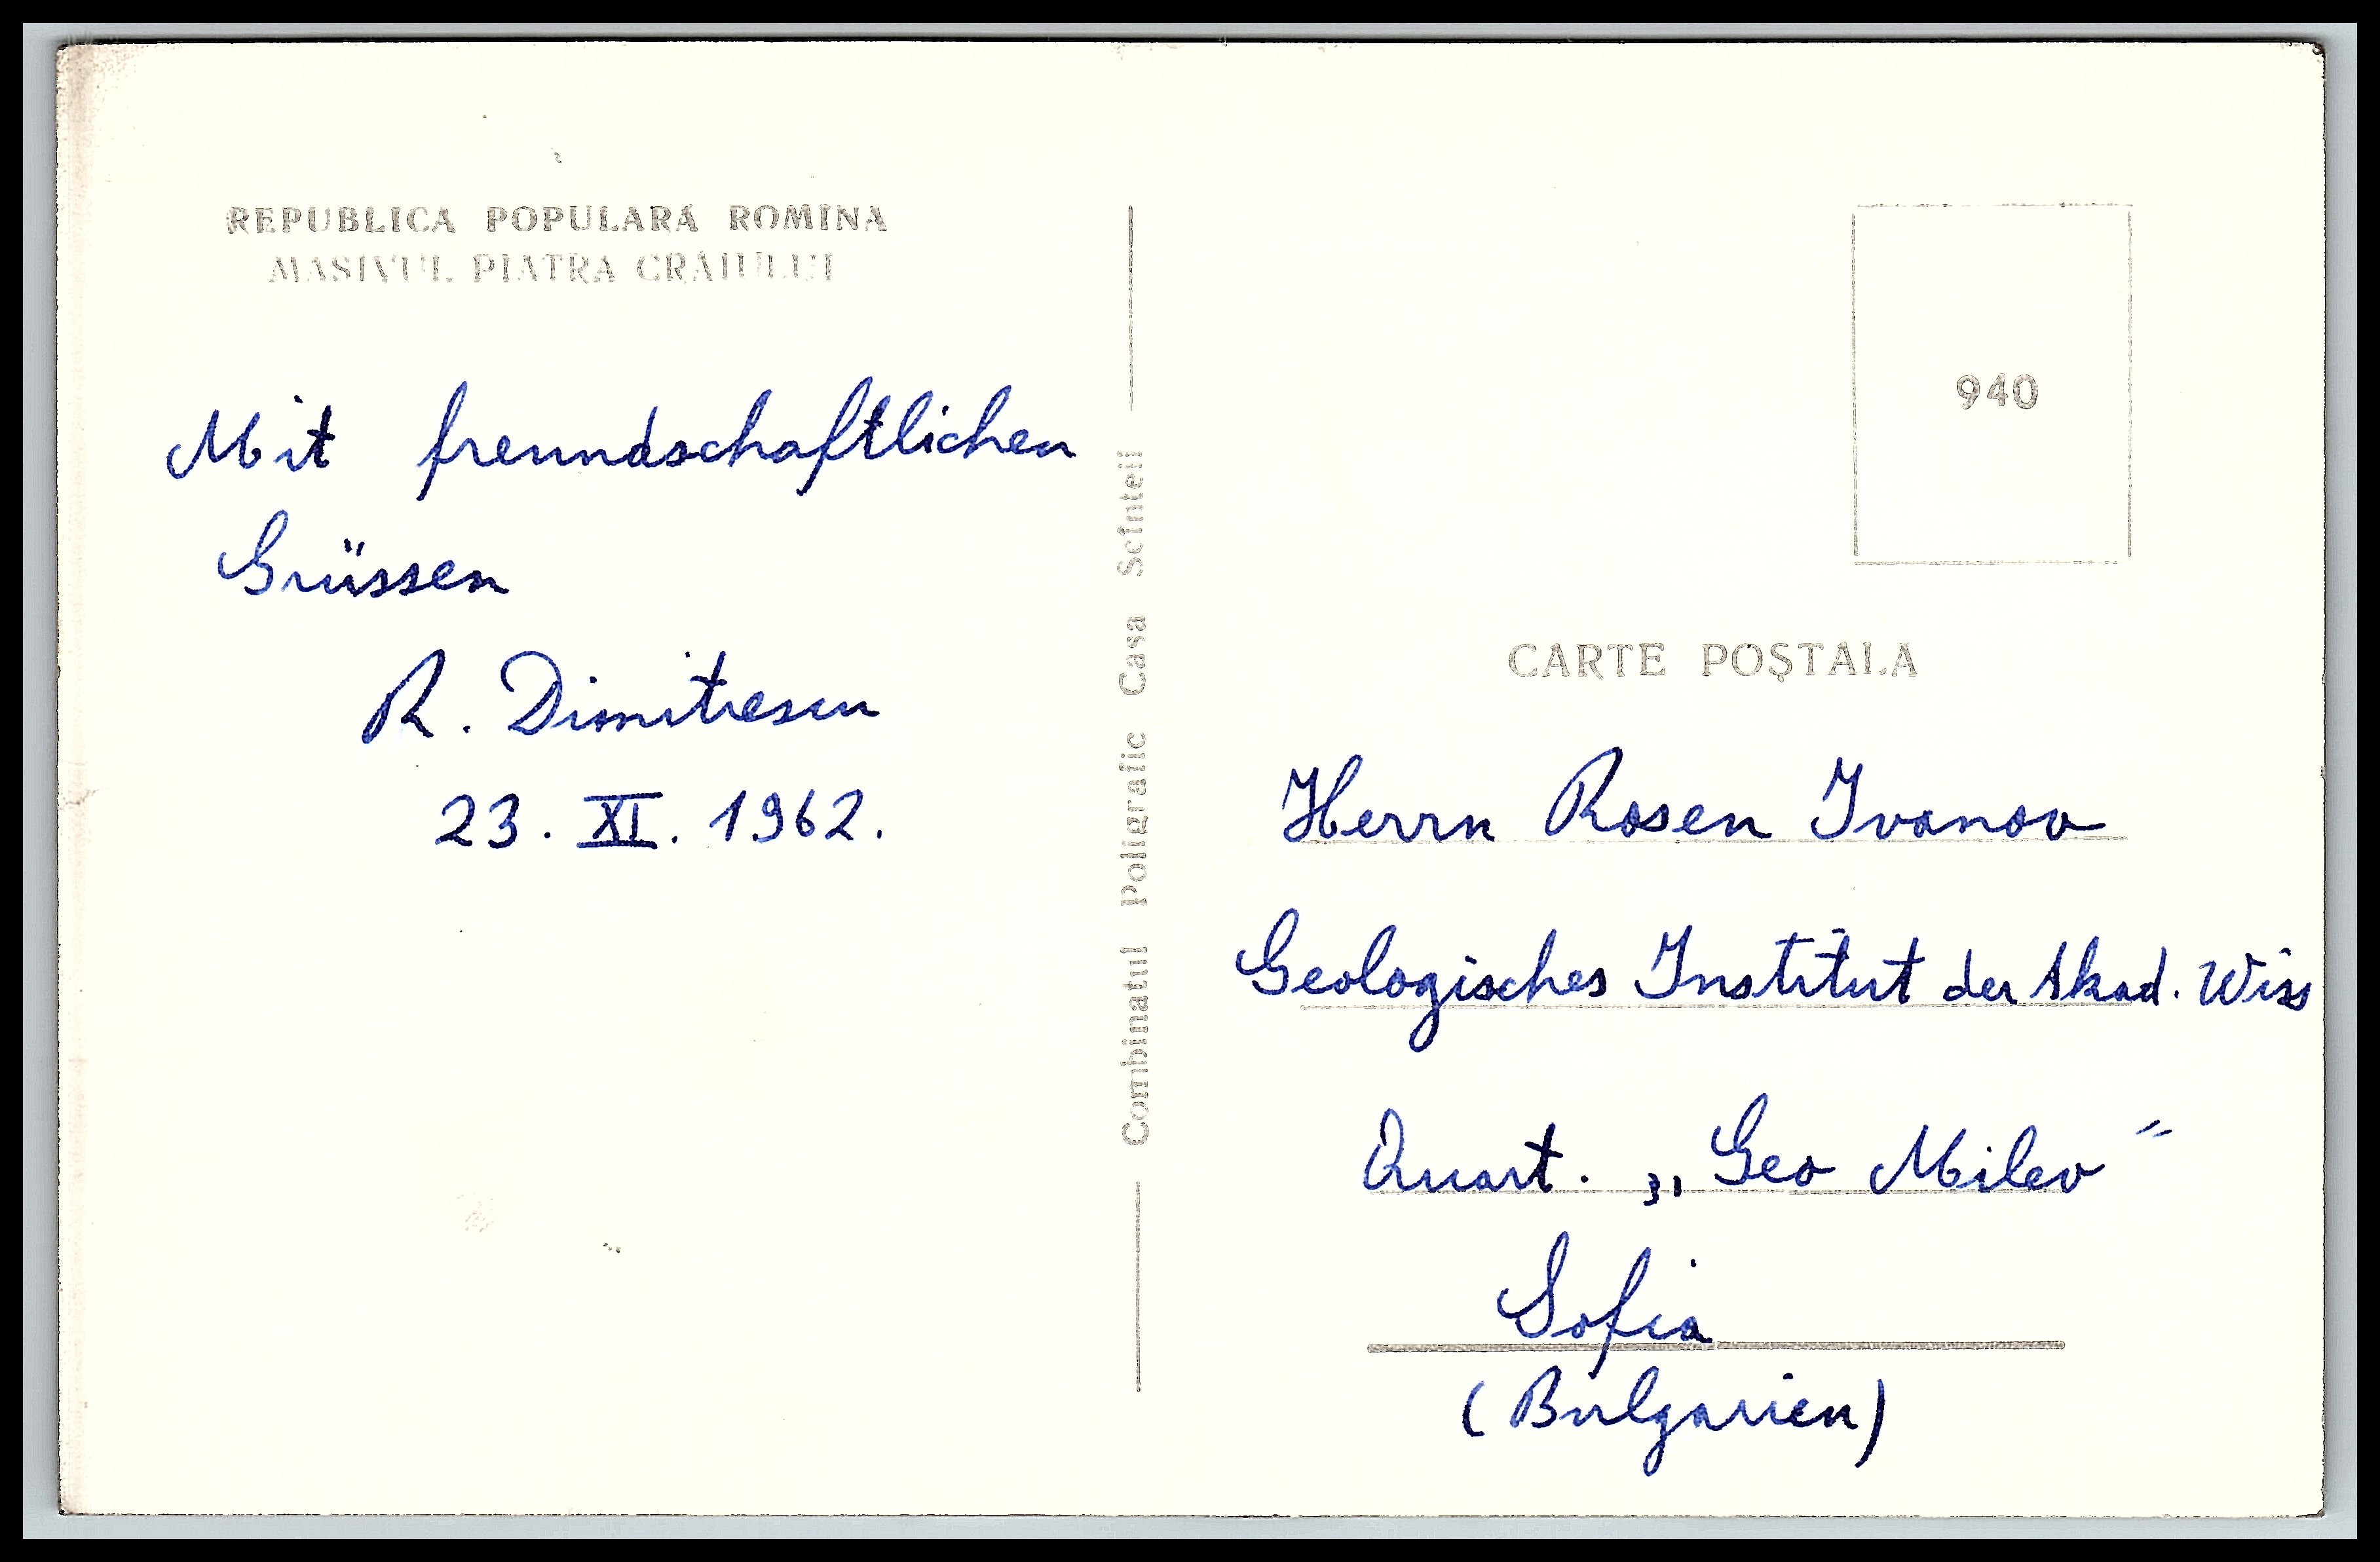 REPUBLICA POPULARA ROMINA
MASIVUL PIATRA CRAIULUI
Mit freundschaftlichen
Grüssen
R. Dimitrescu
23. XI. 1962.
Combinatul Poligrafic Casa Scînteii
940
CARTE POŞTALA
Herrn Rosen Ivanov
Geologisches Institut der Akad. Wiss
Quart. „Geo Milev"
Sofia
(Bulgarien)